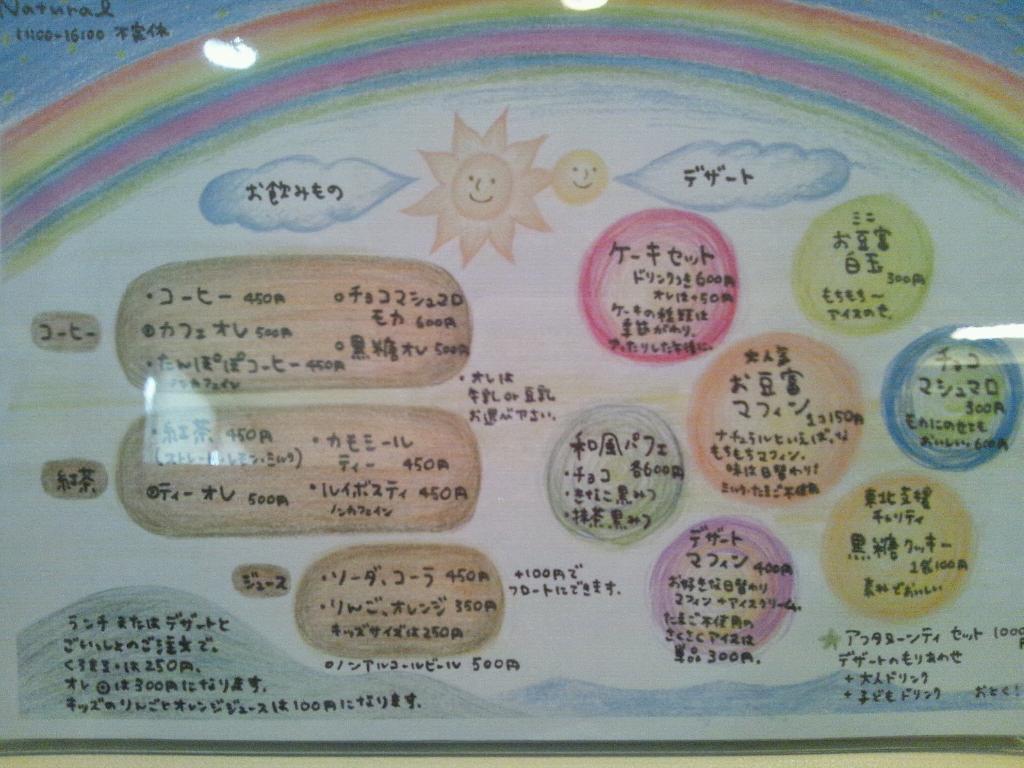 Natural
11:00~16:00 不定休
お飲みもの
デザート
コーヒー
・コーヒー 450円
◎カフェオレ 500円
・たんぽぽコーヒー 450円
ノンカフェイン
○チョコマシュマロ
モカ 600円
○黒糖オレ 500円
・オレは
牛乳or豆乳
お選び下さい。
紅茶
・紅茶 450円
(ストレート・レモン・ミルク)
◎ティーオレ 500円
・カモミール
ティー 450円
・ルイボスティ 450円
ノンカフェイン
ジュース
・ソーダ、コーラ 450円
・りんご、オレンジ 350円
キッズサイズは250円
○ノンアルコールビール 500円
+100円で
フロートにできます。
ランチまたはデザートと
ごいっしょのご注文で、
くろまる・は250円、
オレ◎は300円になります。
キッズのりんごとオレンジジュースは100円になります。
ケーキセット
ドリンクつき600円
オレは+50円
ケーキの種類は
季節がわり。
まったりした午後に。
ミニ
お豆富
白玉 300円
もちもち~
アイスのせ。
大人気
お豆富
マフィン 1コ150円
ナチュラルといえば、な
もちもちマフィン。
味は日替わり!
ミルク・たまご不使用
チョコ
マシュマロ
300円
モカにのせても
おいしい。600円
和風パフェ
・チョコ 各600円
・きなこ黒みつ
・抹茶黒みつ
デザート
マフィン 400円
お好きな日替わり
マフィン+アイスクリーム。
たまご不使用の
さくさくアイスは
単品300円。
東北支援
チャリティ
黒糖クッキー
1袋100円
素朴でおいしい
☆アフタヌーンティセット 1000円
デザートのもりあわせ
+大人ドリンク
+子どもドリンク おとく!